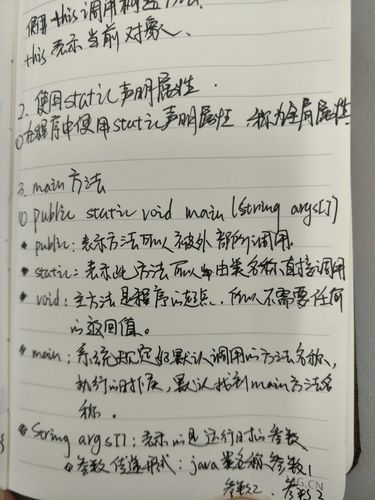 使用this调用构造方法.
this表示当前对象.
2. 使用static声明属性.
①在程序中使用static声明属性,称为全局属性
3. main方法
① public static void main (String args[])
• public: 表示方法可以被外部所调用.
• static: 表示此方法可以由类名称直接调用
• void: 主方法是程序的起点,所以不需要任何
的返回值。
• main: 系统规定好默认调用的方法名称,
执行的时候,默认找到main方法名
称.
• String args[]: 表示的是运行时的参数
• 参数传递形式: java类名称 参数1
参数2. 参数